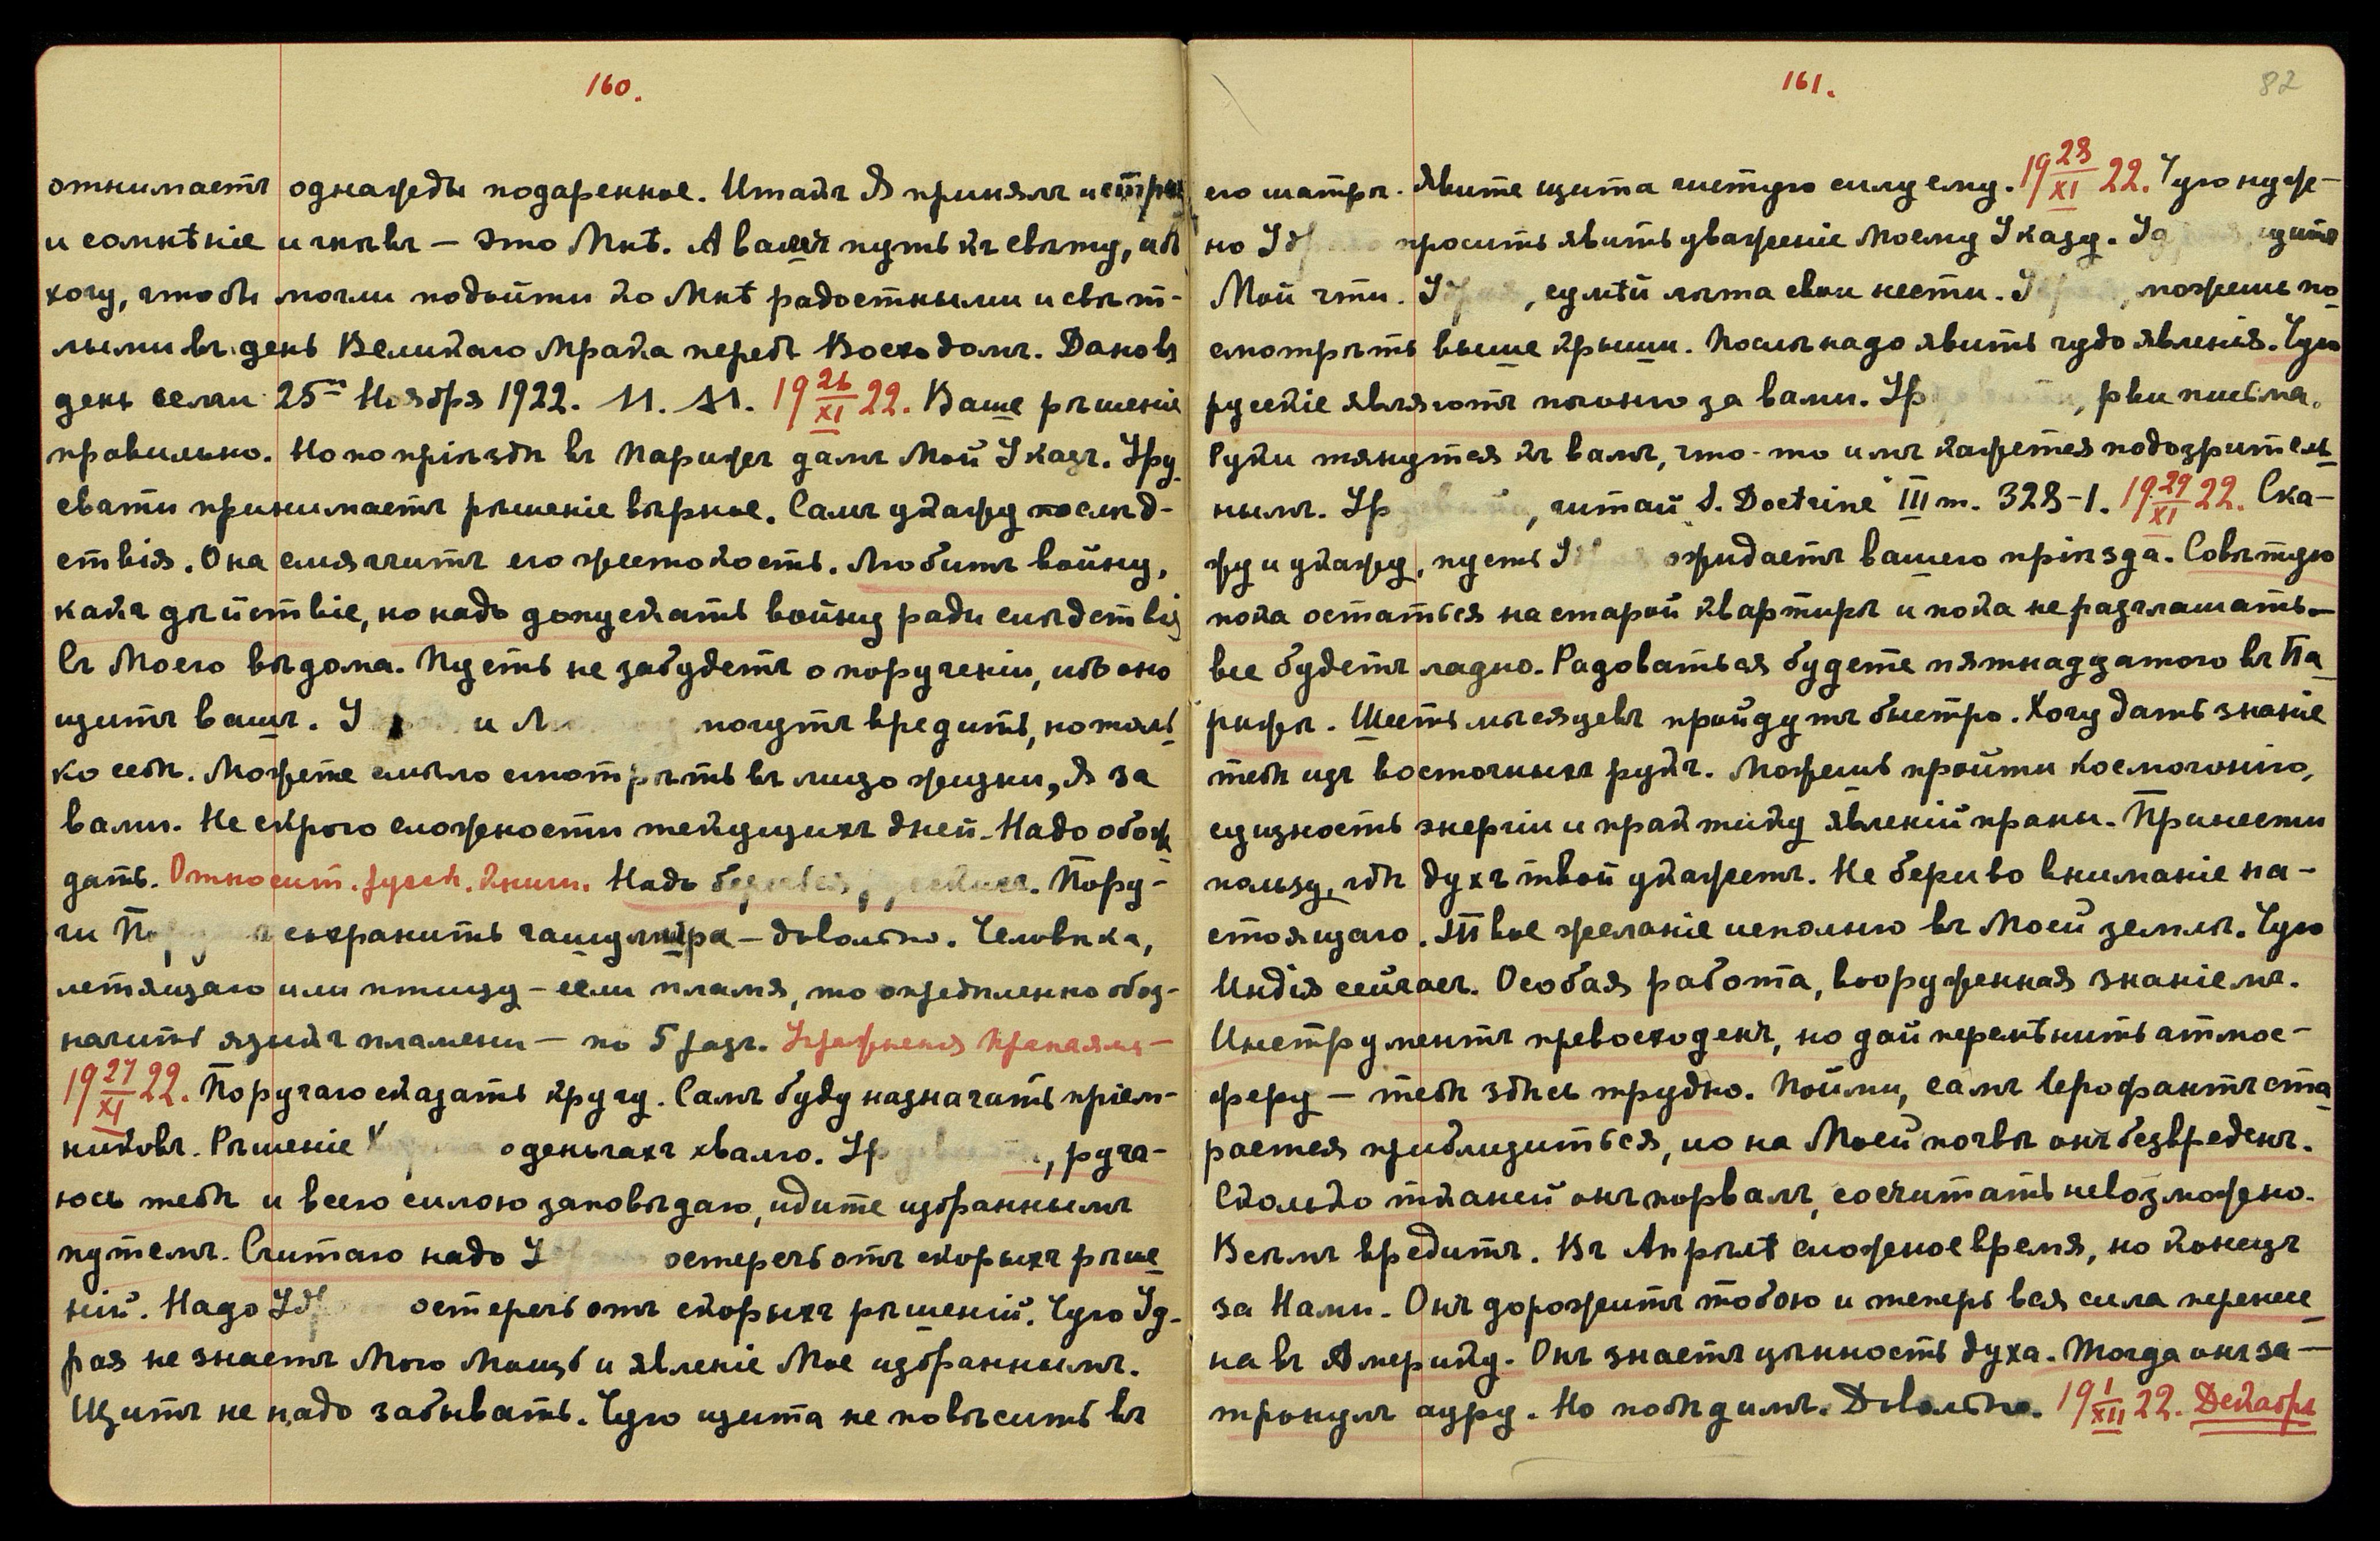 160.
отнимаетъ однажды подаренное. Итакъ Я принялъ и
и сомнѣніе и гнѣвъ — это Мнѣ. А вашъ путь къ свѣту, ибо
хочу, чтобы могли подойти ко Мнѣ радостными и свѣт-
лыми въ день Великаго Мрака передъ Восходомъ. Данові
день семи 25го Ноября 1922. М. М. 19 26/XI 22. Ваше рѣшеніе
правильно. Но по пріѣздѣ въ Парижъ дамъ Мой Указъ. Уру
свати принимаетъ рѣшеніе вѣрное. Самъ укажу послѣд-
ствія. Она смягчитъ его жестокость. Любитъ войну,
какъ дѣйствіе, но надо допускать войну ради слѣдствія
съ Моего вѣдома. Пусть не забудетъ о порученіи, ибо оно
щитъ вашъ. У и Л могутъ вредить, но толь
ко себѣ. Можете смѣло смотрѣть въ лицо жизни, Я за
вами. Не скрою сложности текущихъ дней. Надо обож
дать. Относит. русск. книги. Надо беречься русскихъ. Пору-
чи сохранить чашу мира — довольно. Человѣка,
летящаго или птицу — если пламя, то опредѣленно обоз-
начить языкъ пламени — по 5 разъ. Упражненія Пранаямы —
19 27/XI 22. Поручаю сказать кругу. Самъ буду назначать пріем-
никовъ. Рѣшеніе Х о деньгахъ хвалю. Ур , руча-
юсь тебѣ и всею силою заповѣдаю, идите избраннымъ
путемъ. Считаю надо У остеречь отъ скорыхъ рѣше
ній. Надо Удр остеречь отъ скорыхъ рѣшеній. Чую Уд-
рая не знаетъ Мою Мощь и явленіе Мое избраннымъ.
Щитъ не надо забывать. Чую щита не повѣсить въ
161.
82
его шатрѣ. Явите щита чистую силу ему. 19 28/XI 22. Чую нуж-
но Удр просить явить уваженіе Моему Указу. Уд щитъ
Мой чти. У , сумѣй лѣта свои нести. У , можешь по
смотрѣть выше крыши. Послѣ надо явить чудо явленія. Чую
русскіе являютъ погоню за вами. Ур , рви письма.
Руки тянутся къ вамъ, что-то имъ кажется подозритель
нымъ. Ур , читай S. Doctrine III т. 328-1. 19 29/XI 22. Ска-
жу и укажу, пусть У ожидаетъ вашего пріѣзда. Совѣтую
пока остаться на старой квартирѣ и пока не разглашать —
все будетъ ладно. Радоваться будете пятнадцатого въ Па
рижѣ. Шесть мѣсяцевъ пройдутъ быстро. Хочу дать знаніе
тебѣ изъ восточныхъ рукъ. Можешь пройти космогонію,
сущность энергіи и практику явленій праны. Принести
пользу, гдѣ духъ твой укажетъ. Не бери во вниманіе на-
стоящаго. Твое желаніе исполню въ Моей землѣ. Чую
Индія сейчасъ. Особая работа, вооруженная знаніемъ.
Инструментъ превосходенъ, но дай перемѣнить атмос-
феру — тебѣ здѣсь трудно. Пойми, самъ Іерофантъ ста
рается приблизиться, но на Моей почвѣ онъ безвреденъ.
Сколько тканей онъ порвалъ, сосчитать невозможно.
Всѣмъ вредитъ. Въ Апрѣлѣ сложное время, но конецъ
за Нами. Онъ дорожитъ тобою и теперь вся сила перенесе
на въ Америку. Онъ знаетъ цѣнность духа. Тогда онъ за-
тронулъ ауру. Но побѣдимъ. Довольно. 19 1/XII 22. Декабрь